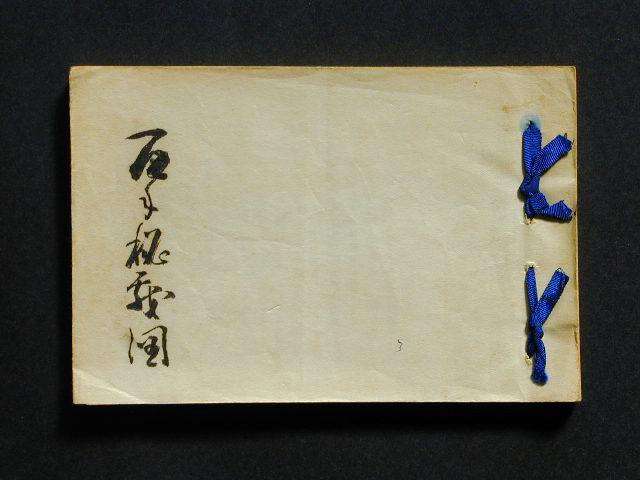 百手秘戯図